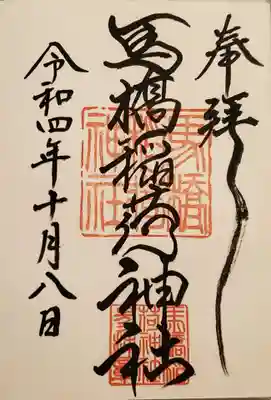 奉拝
馬橋稲荷神社
令和四年十月八日